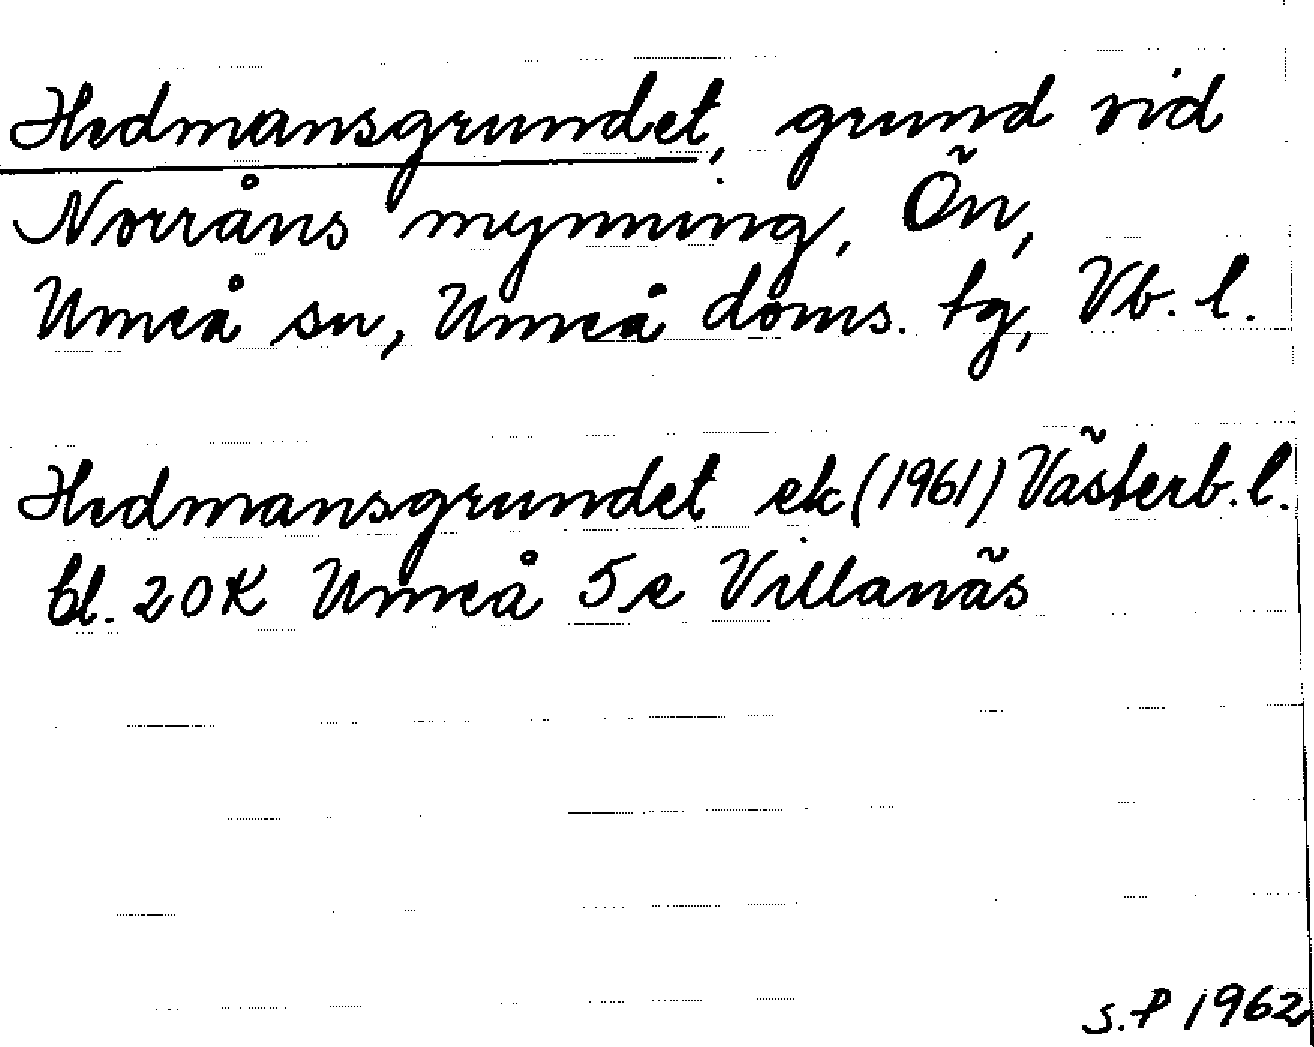 Hedmansgrundet, grund vid
Norråns mynning, Ön,
Umeå sn, Umeå doms. tg, Vb. l.
Hedmansgrundet ek (1961) Västerb. l.
bl. 20K Umeå 5e Villanäs
S.P 1962